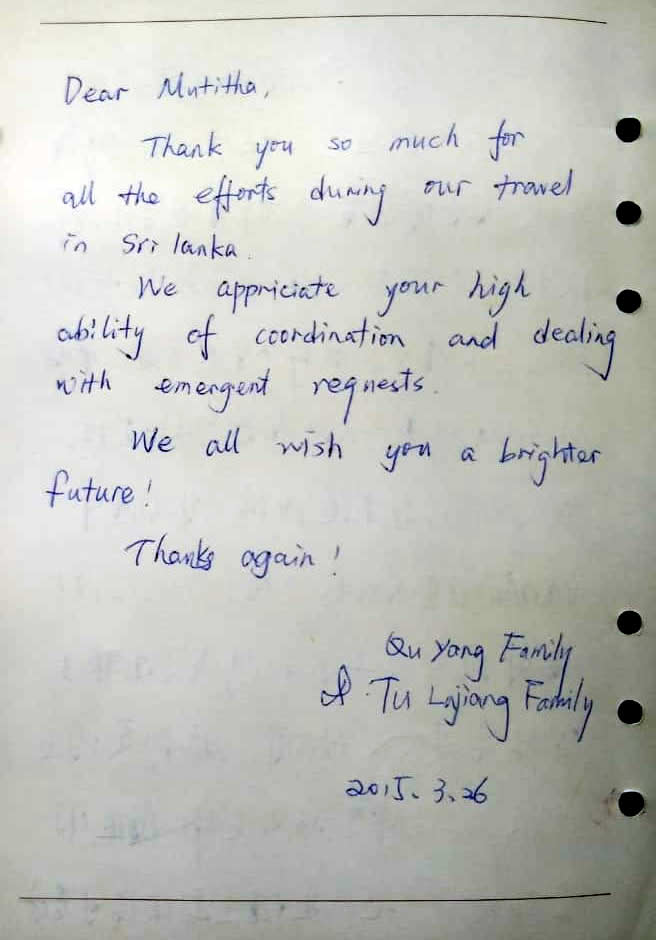 Dear Mutitha,
Thank you so much for
all the efforts during our travel
in Sri lanka.
We appriciate your high
ability of coordination and dealing
with emergent requests.
We all wish you a brighter
future!
Thanks again!
Qu Yang Family
& Tu Family
2015.3.26